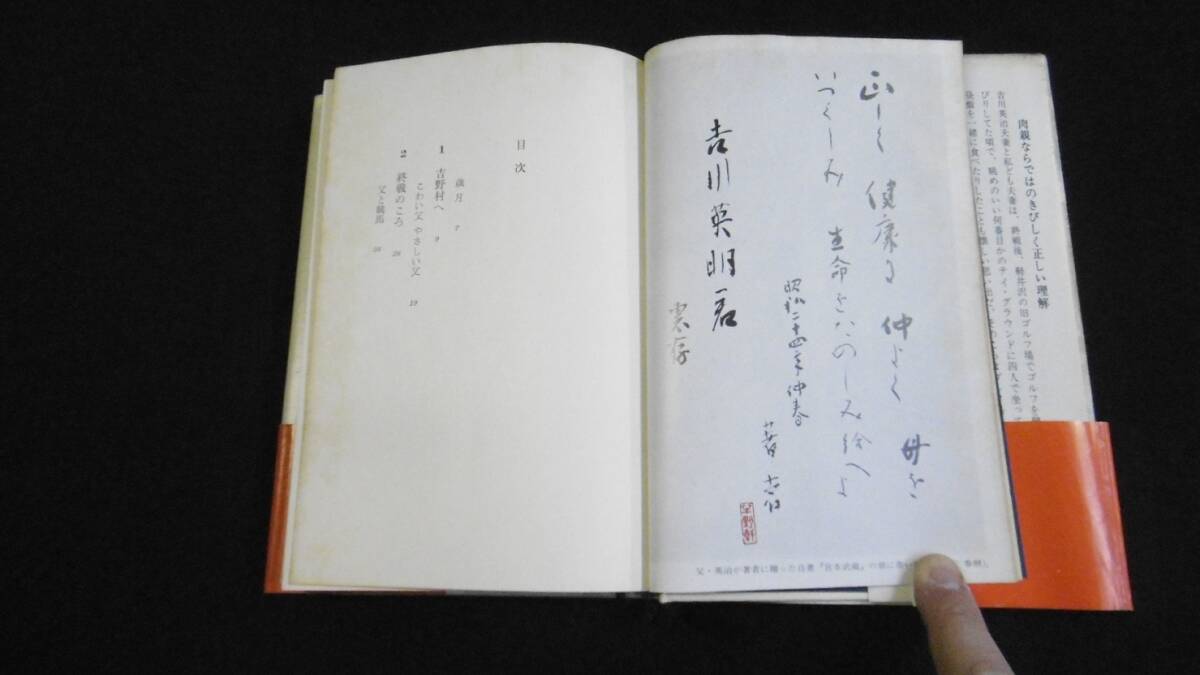 肉親ならではのきびしく正しい理解
吉川英治夫妻と私ども夫妻は、終戦後、軽井沢の旧ゴルフ場でゴルフを
びりしてた頃で、眺めのいい何番目かのティ・グラウンドに四人で坐って
昼飯を一緒に食べたりしたことも懐しい思い出だ。
正しく 健康に 仲よく 母を
いつくしみ 生命をたのしみ給へよ
昭和二十四年仲春
吉川英明君
父・英治が著者に贈った自著『宮本武蔵』の扉に
参照)。
目次
歳月 7
1 吉野村へ 9
こわい父 やさしい父 19
2 終戦のころ 28
父と競馬 28